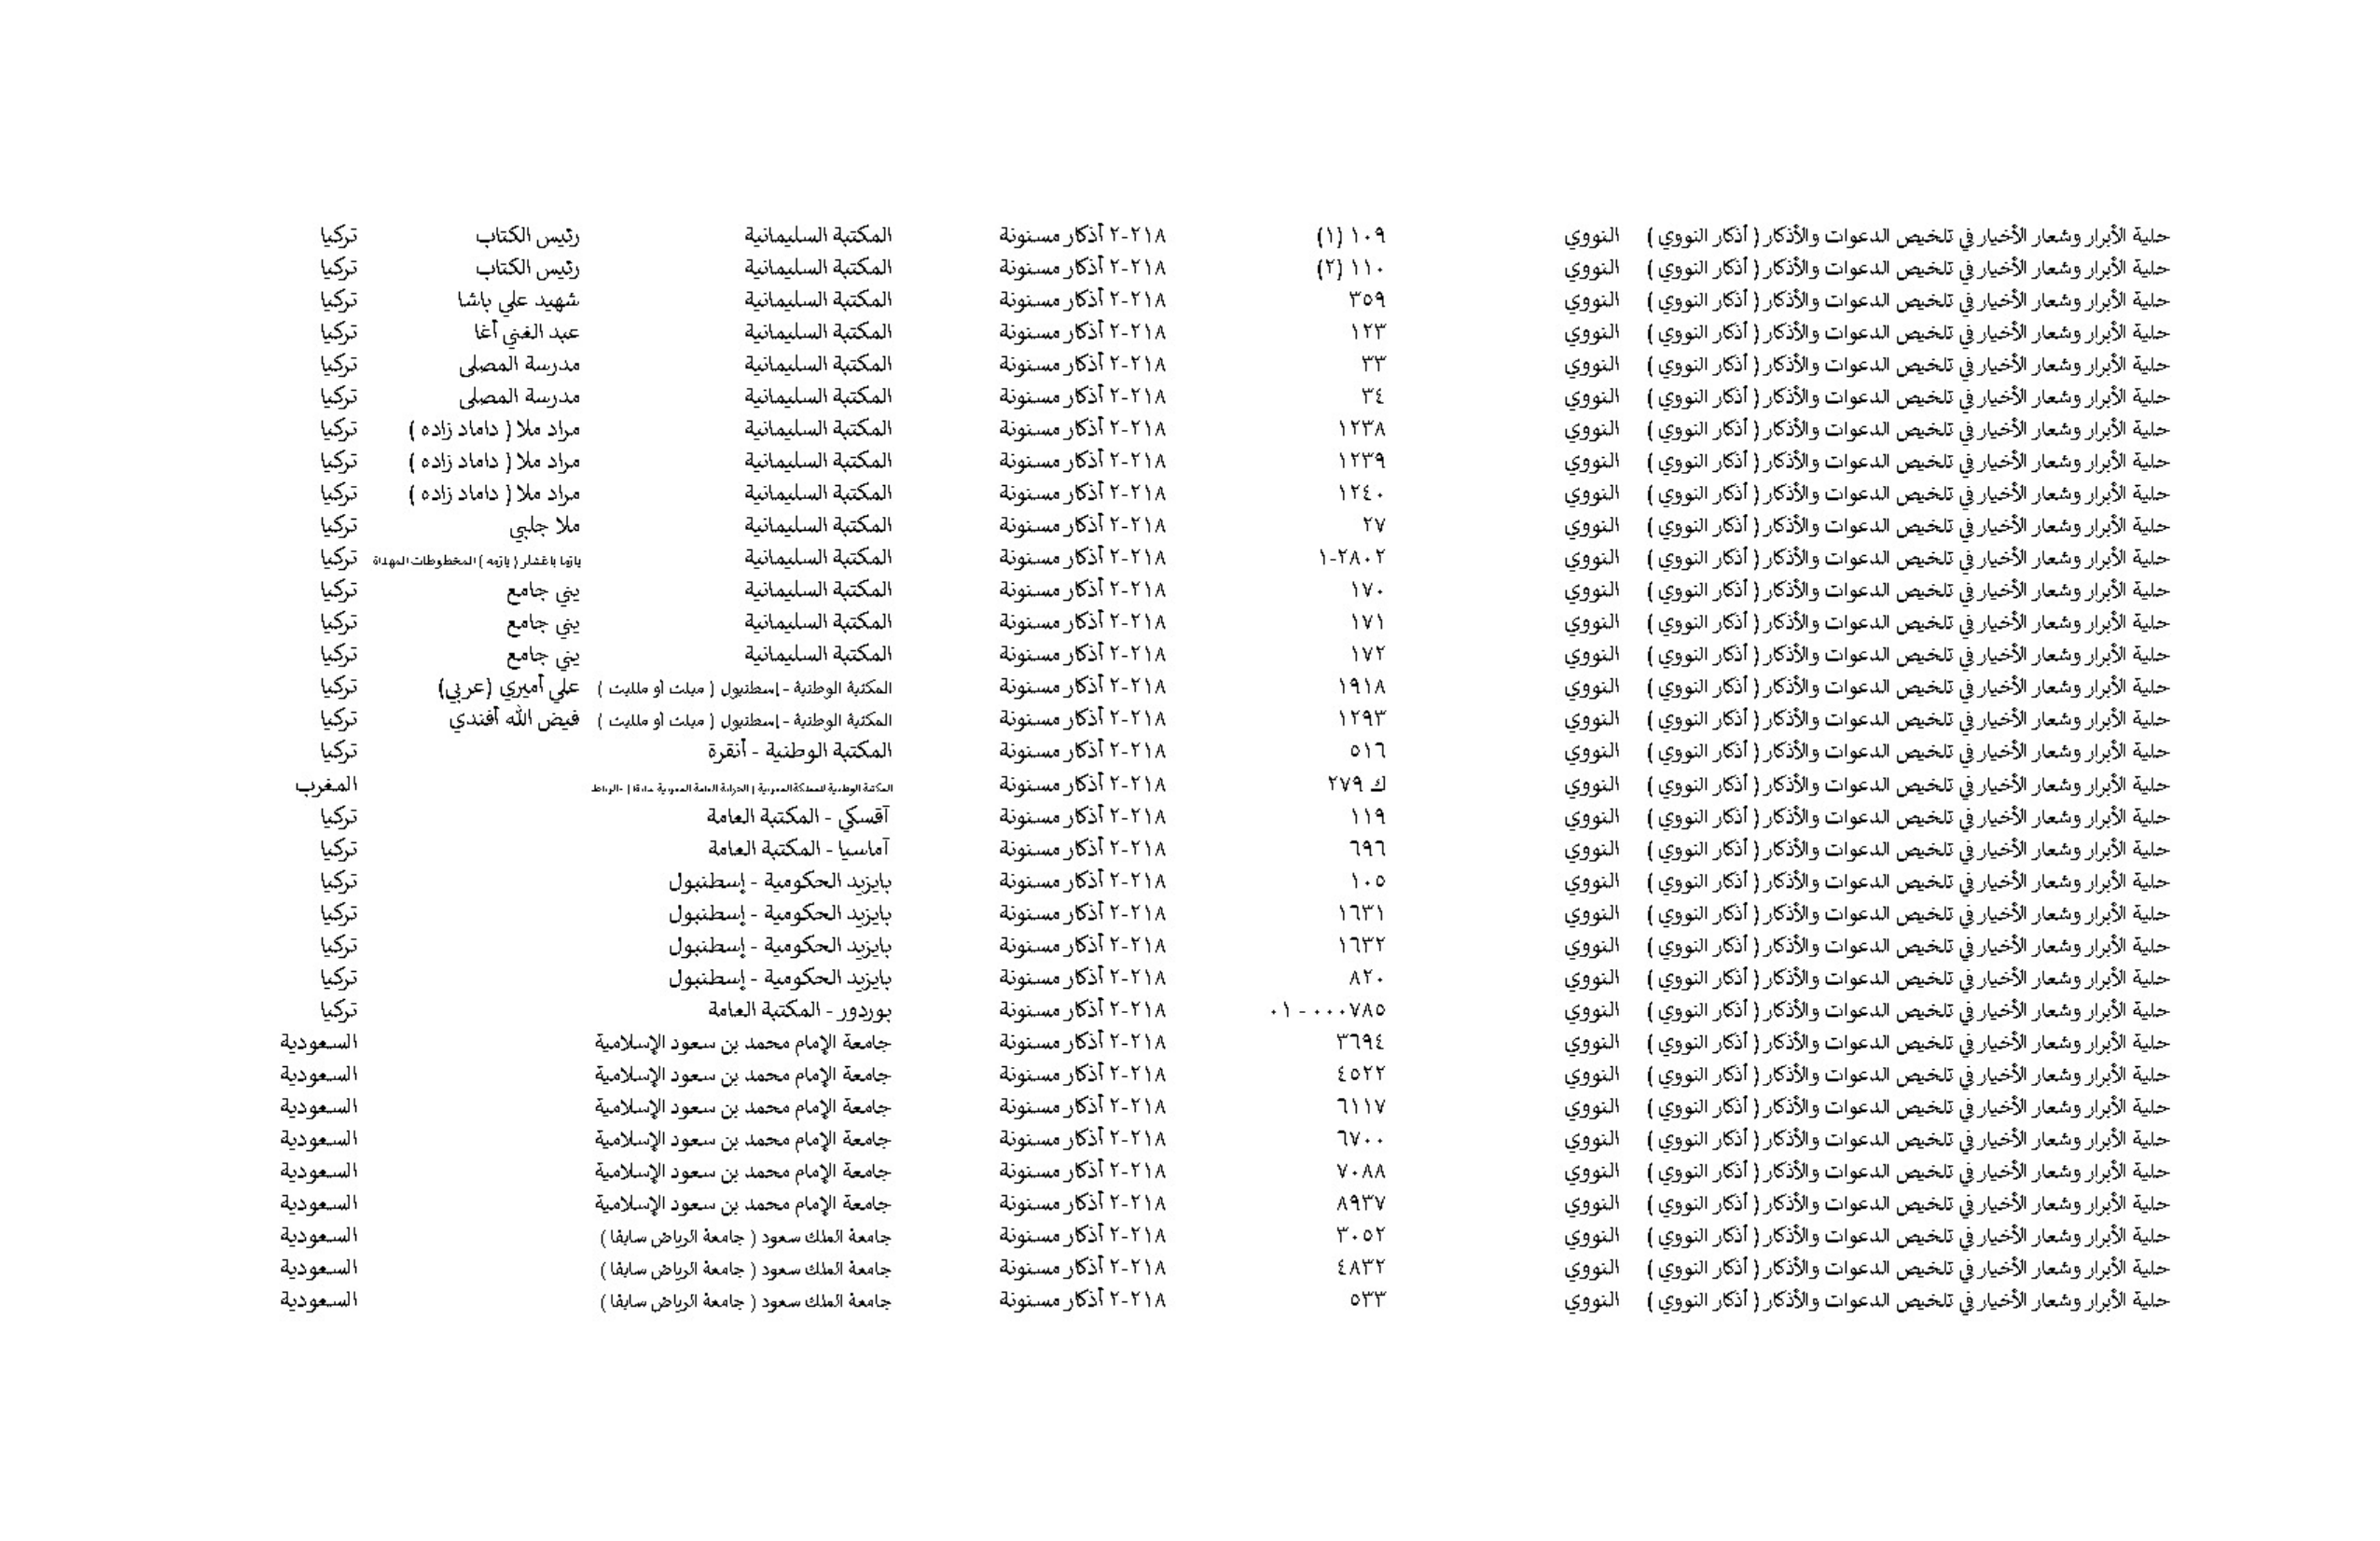 حلية الأبرار وشعار الأخيار في تلخيص الدعوات والأذكار ( أذكار النووي ) النووي ١٠٩ (١) ٢١٨-٢ أذكار مسنونة المكتبة السليمانية رئيس الكتاب تركيا
حلية الأبرار وشعار الأخيار في تلخيص الدعوات والأذكار ( أذكار النووي ) النووي ١١٠ (٢) ٢١٨-٢ أذكار مسنونة المكتبة السليمانية رئيس الكتاب تركيا
حلية الأبرار وشعار الأخيار في تلخيص الدعوات والأذكار ( أذكار النووي ) النووي ٣٥٩ ٢١٨-٢ أذكار مسنونة المكتبة السليمانية شهيد علي باشا تركيا
حلية الأبرار وشعار الأخيار في تلخيص الدعوات والأذكار ( أذكار النووي ) النووي ١٢٣ ٢١٨-٢ أذكار مسنونة المكتبة السليمانية عبد الغني أغا تركيا
حلية الأبرار وشعار الأخيار في تلخيص الدعوات والأذكار ( أذكار النووي ) النووي ٣٣ ٢١٨-٢ أذكار مسنونة المكتبة السليمانية مدرسة المصلى تركيا
حلية الأبرار وشعار الأخيار في تلخيص الدعوات والأذكار ( أذكار النووي ) النووي ٣٤ ٢١٨-٢ أذكار مسنونة المكتبة السليمانية مدرسة المصلى تركيا
حلية الأبرار وشعار الأخيار في تلخيص الدعوات والأذكار ( أذكار النووي ) النووي ١٢٣٨ ٢١٨-٢ أذكار مسنونة المكتبة السليمانية مراد ملا ( داماد زاده ) تركيا
حلية الأبرار وشعار الأخيار في تلخيص الدعوات والأذكار ( أذكار النووي ) النووي ١٢٣٩ ٢١٨-٢ أذكار مسنونة المكتبة السليمانية مراد ملا ( داماد زاده ) تركيا
حلية الأبرار وشعار الأخيار في تلخيص الدعوات والأذكار ( أذكار النووي ) النووي ١٢٤٠ ٢١٨-٢ أذكار مسنونة المكتبة السليمانية مراد ملا ( داماد زاده ) تركيا
حلية الأبرار وشعار الأخيار في تلخيص الدعوات والأذكار ( أذكار النووي ) النووي ٢٧ ٢١٨-٢ أذكار مسنونة المكتبة السليمانية ملا جلبي تركيا
حلية الأبرار وشعار الأخيار في تلخيص الدعوات والأذكار ( أذكار النووي ) النووي ٢٨٠٢-١ ٢١٨-٢ أذكار مسنونة المكتبة السليمانية يازما باغشلر ( يازمه ) المخطوطات المهداة تركيا
حلية الأبرار وشعار الأخيار في تلخيص الدعوات والأذكار ( أذكار النووي ) النووي ١٧٠ ٢١٨-٢ أذكار مسنونة المكتبة السليمانية يني جامع تركيا
حلية الأبرار وشعار الأخيار في تلخيص الدعوات والأذكار ( أذكار النووي ) النووي ١٧١ ٢١٨-٢ أذكار مسنونة المكتبة السليمانية يني جامع تركيا
حلية الأبرار وشعار الأخيار في تلخيص الدعوات والأذكار ( أذكار النووي ) النووي ١٧٢ ٢١٨-٢ أذكار مسنونة المكتبة السليمانية يني جامع تركيا
حلية الأبرار وشعار الأخيار في تلخيص الدعوات والأذكار ( أذكار النووي ) النووي ١٩١٨ ٢١٨-٢ أذكار مسنونة المكتبة الوطنية - إسطنبول ( ميلت أو ملليت ) علي أميري (عربي) تركيا
حلية الأبرار وشعار الأخيار في تلخيص الدعوات والأذكار ( أذكار النووي ) النووي ١٢٩٣ ٢١٨-٢ أذكار مسنونة المكتبة الوطنية - إسطنبول ( ميلت أو ملليت ) فيض الله أفندي تركيا
حلية الأبرار وشعار الأخيار في تلخيص الدعوات والأذكار ( أذكار النووي ) النووي ٥١٦ ٢١٨-٢ أذكار مسنونة المكتبة الوطنية - أنقرة تركيا
حلية الأبرار وشعار الأخيار في تلخيص الدعوات والأذكار ( أذكار النووي ) النووي ك ٢٧٩ ٢١٨-٢ أذكار مسنونة المكتبة الوطنية للمملكة المغربية ( الخزانة العامة المغربية سابقا ) -الرباط المغرب
حلية الأبرار وشعار الأخيار في تلخيص الدعوات والأذكار ( أذكار النووي ) النووي ١١٩ ٢١٨-٢ أذكار مسنونة آقسكي - المكتبة العامة تركيا
حلية الأبرار وشعار الأخيار في تلخيص الدعوات والأذكار ( أذكار النووي ) النووي ٦٩٦ ٢١٨-٢ أذكار مسنونة آماسيا - المكتبة العامة تركيا
حلية الأبرار وشعار الأخيار في تلخيص الدعوات والأذكار ( أذكار النووي ) النووي ١٠٥ ٢١٨-٢ أذكار مسنونة بايزيد الحكومية - إسطنبول تركيا
حلية الأبرار وشعار الأخيار في تلخيص الدعوات والأذكار ( أذكار النووي ) النووي ١٦٣١ ٢١٨-٢ أذكار مسنونة بايزيد الحكومية - إسطنبول تركيا
حلية الأبرار وشعار الأخيار في تلخيص الدعوات والأذكار ( أذكار النووي ) النووي ١٦٣٢ ٢١٨-٢ أذكار مسنونة بايزيد الحكومية - إسطنبول تركيا
حلية الأبرار وشعار الأخيار في تلخيص الدعوات والأذكار ( أذكار النووي ) النووي ٨٢٠ ٢١٨-٢ أذكار مسنونة بايزيد الحكومية - إسطنبول تركيا
حلية الأبرار وشعار الأخيار في تلخيص الدعوات والأذكار ( أذكار النووي ) النووي ٠٠٠٧٨٥ - ٠١ ٢١٨-٢ أذكار مسنونة بوردور - المكتبة العامة تركيا
حلية الأبرار وشعار الأخيار في تلخيص الدعوات والأذكار ( أذكار النووي ) النووي ٣٦٩٤ ٢١٨-٢ أذكار مسنونة جامعة الإمام محمد بن سعود الإسلامية السعودية
حلية الأبرار وشعار الأخيار في تلخيص الدعوات والأذكار ( أذكار النووي ) النووي ٤٥٢٢ ٢١٨-٢ أذكار مسنونة جامعة الإمام محمد بن سعود الإسلامية السعودية
حلية الأبرار وشعار الأخيار في تلخيص الدعوات والأذكار ( أذكار النووي ) النووي ٦١١٧ ٢١٨-٢ أذكار مسنونة جامعة الإمام محمد بن سعود الإسلامية السعودية
حلية الأبرار وشعار الأخيار في تلخيص الدعوات والأذكار ( أذكار النووي ) النووي ٦٧٠٠ ٢١٨-٢ أذكار مسنونة جامعة الإمام محمد بن سعود الإسلامية السعودية
حلية الأبرار وشعار الأخيار في تلخيص الدعوات والأذكار ( أذكار النووي ) النووي ٧٠٨٨ ٢١٨-٢ أذكار مسنونة جامعة الإمام محمد بن سعود الإسلامية السعودية
حلية الأبرار وشعار الأخيار في تلخيص الدعوات والأذكار ( أذكار النووي ) النووي ٨٩٣٧ ٢١٨-٢ أذكار مسنونة جامعة الإمام محمد بن سعود الإسلامية السعودية
حلية الأبرار وشعار الأخيار في تلخيص الدعوات والأذكار ( أذكار النووي ) النووي ٣٠٥٢ ٢١٨-٢ أذكار مسنونة جامعة الملك سعود ( جامعة الرياض سابقا ) السعودية
حلية الأبرار وشعار الأخيار في تلخيص الدعوات والأذكار ( أذكار النووي ) النووي ٤٨٣٢ ٢١٨-٢ أذكار مسنونة جامعة الملك سعود ( جامعة الرياض سابقا ) السعودية
حلية الأبرار وشعار الأخيار في تلخيص الدعوات والأذكار ( أذكار النووي ) النووي ٥٣٣ ٢١٨-٢ أذكار مسنونة جامعة الملك سعود ( جامعة الرياض سابقا ) السعودية